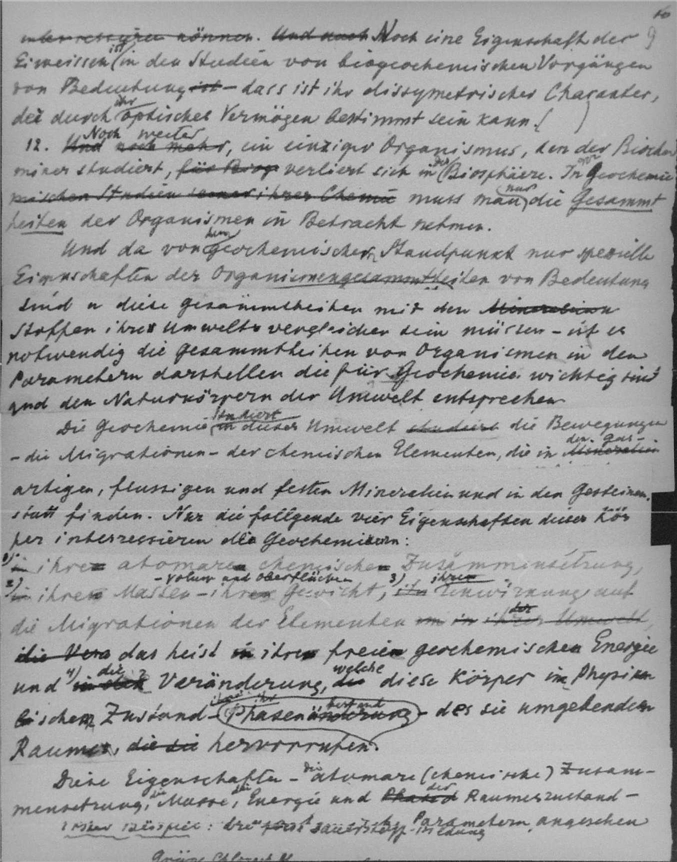 10
9
interressieren können. Und noch Noch eine Eigenschaft der
Eiweissen ist in den Studien von biogeochemischen Vorgängen
von Bedeutung ist – das ist ihr dissymetrischer Charakter,
der durch ihr optisches Vermögen bestimmt sein kann.
12. Und noch mehr, Noch weiter ein einziger Organismus, den der Bioche
miner studiert, verliert sich in der Biosphäre. In der Geochemie
muss man nur die Gesammt
heiten der Organismen in Betracht nehmen.
Und da von geochemischen Standpunkt nur spezielle
Eigenschaften der Organismengesammtheiten von Bedeutung
sind u diese Gesammtheiten mit den Mineralien
Stoffen ihrer Umwelt vergleichen sein müssen – ist es
notwendig die Gesammtheiten von Organismen in den
Parametern darstellen die für Geochemie wichtig sind
und den Naturkörpern der Umwelt entsprechen.
Die Geochemie studiert in dieser Umwelt studiert die Bewegungen
– die Migrationen – der chemischen Elementen, die in den gas- Mineralien
artigen, flussigen und festen Mineralien und in den Gesteinen
statt finden. Nur die follgende vier Eigenschaften dieser Kör
per interressieren die Geochemikern:
1) in ihrer atomaren chemischen Zusammensetzung,
2) in ihren Massen – Volum und Oberflächen – Gewicht, 3) ihrer Einwirkung auf
die Migrationen der Elementen in der Umwelt,
das heist in ihrer freien geochemischen Energie
und 4) die Veränderung, welche diese Körper im Physika
lischem Zustand – Phasenänderung – des sie umgebenden
Raumes, die sie hervorrufen.
Diese Eigenschaften – die atomare (chemische) Zusam-
mensetzung, die Masse, die Energie und der Raumeszustand –
Parametern angesehen